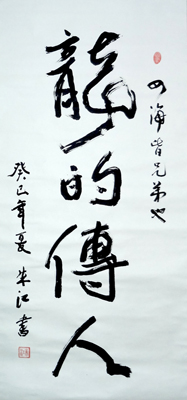 四海皆兄弟也
龍的傳人
癸巳年夏 朱江書